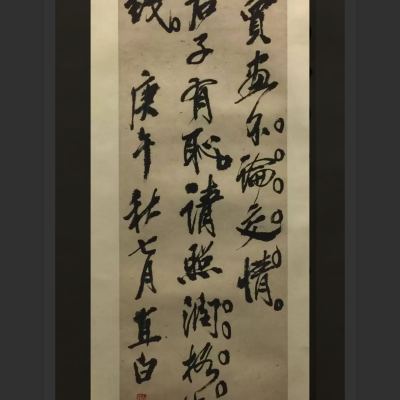 賣畫不論交情。
君子有恥請照潤格
錢。庚午秋七月直白